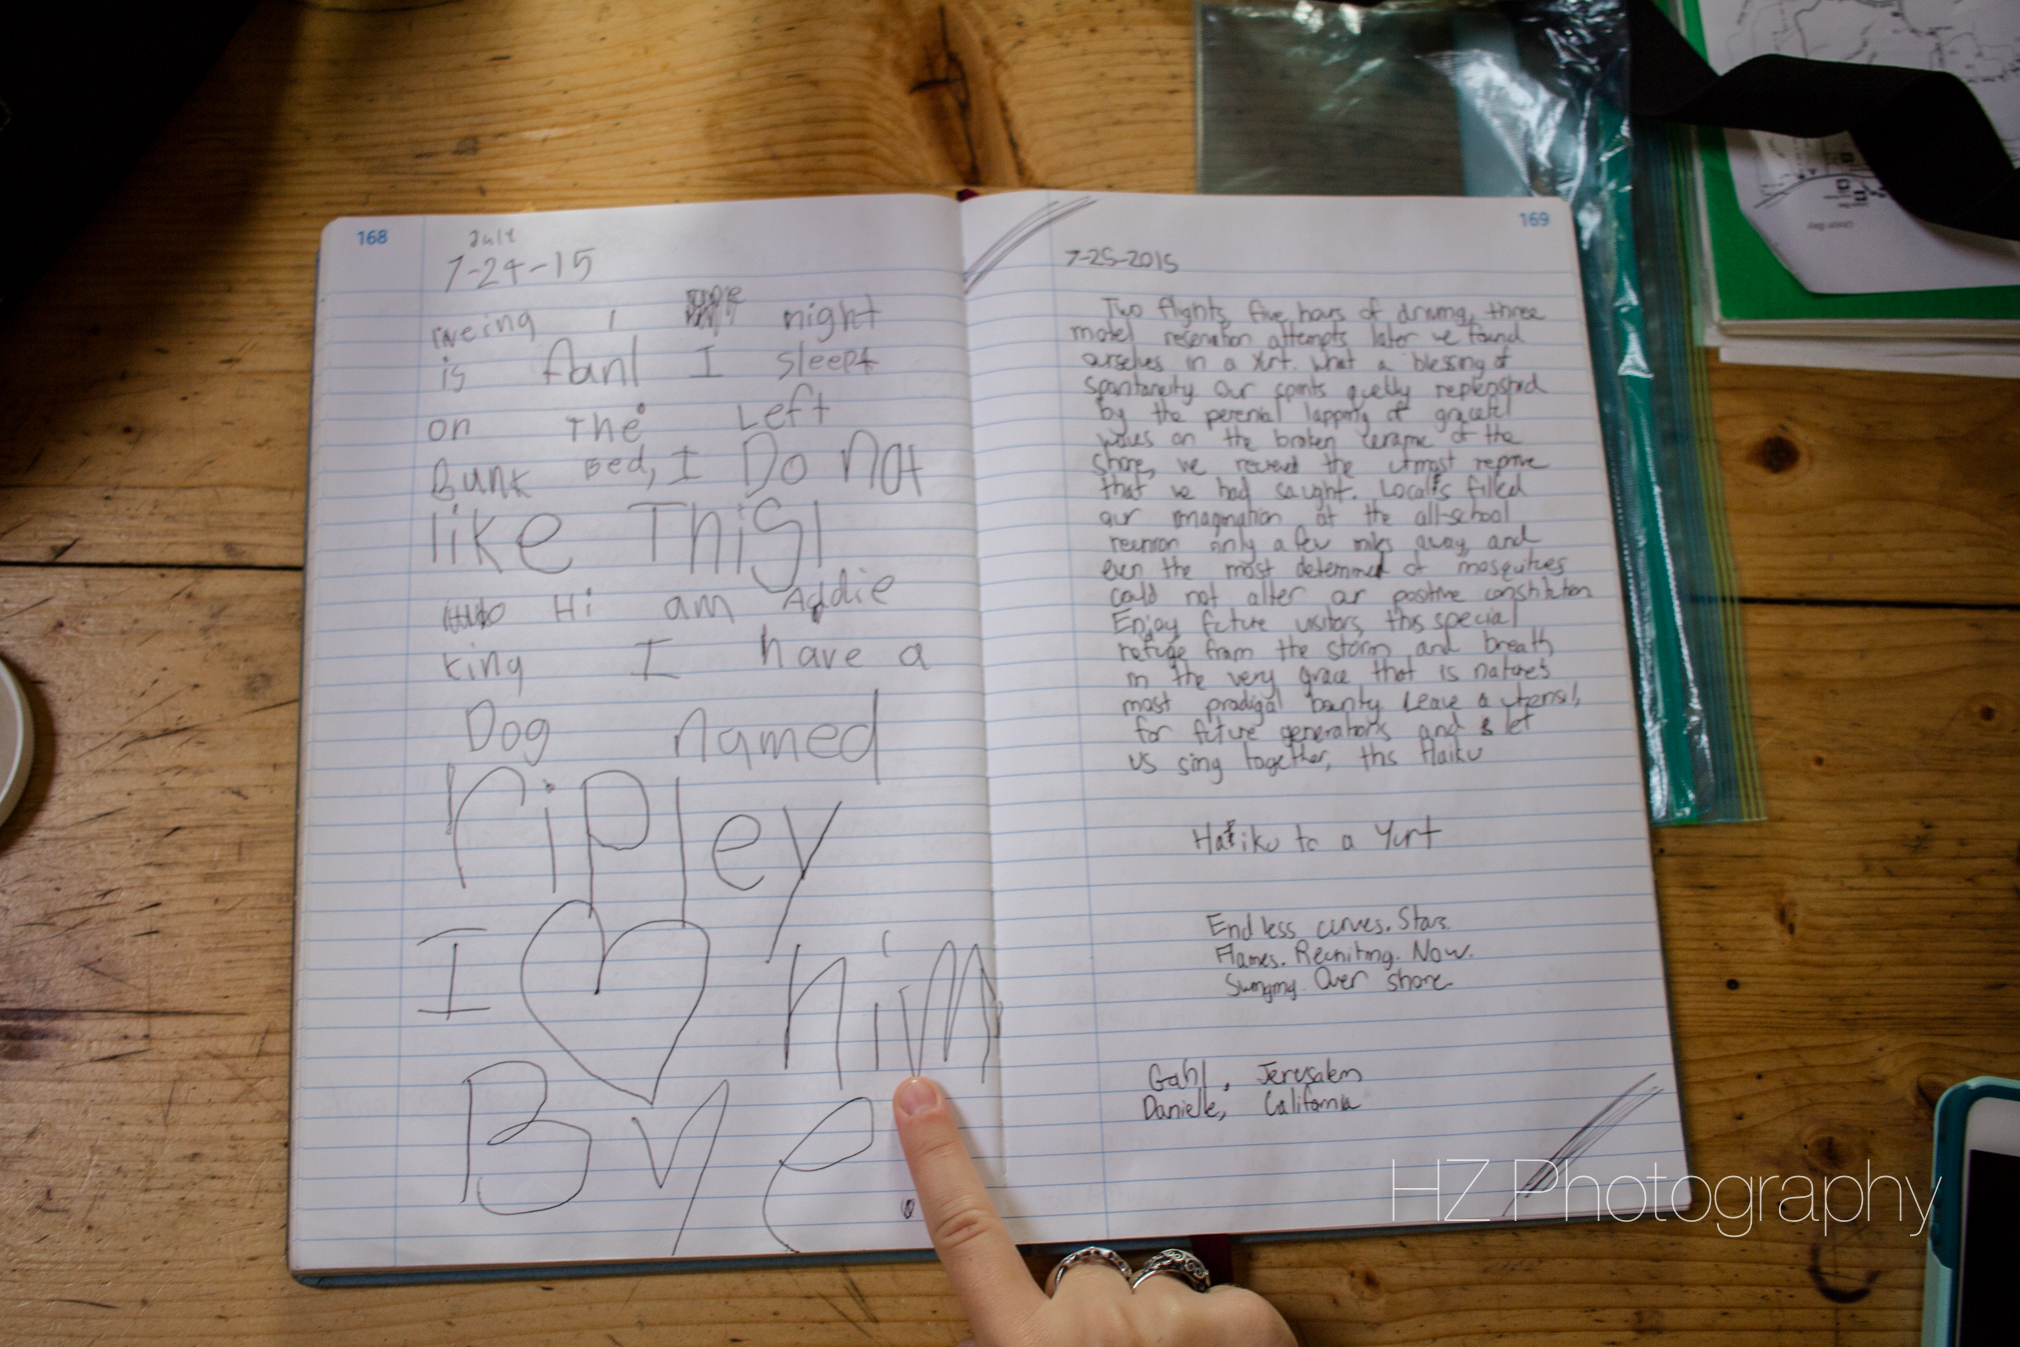 168
July
7-24-15
I night
is I sleept
on The Left
Bunk Bed, I Do not
like This!
Hi am Addie
king I have a
Dog named
ripley
I him
Bye.
169
7-25-2015
Two flights, five hours of driving, three
motel reservation attempts later we found
ourselves in a Yurt. What a blessing of
spontaneity. Our spirits quelly replenished
by the perenial lapping of graceful
waves on the broken cerame of the
shore, we the utmost
that we had saught. Locals filled
our imagination at the all-school
reunion only a few miles away, and
even the most determined of mosquitoes
could not alter our positive constitution
Enjoy future visitors, this special
refuge from the storm, and breath
in the very grace that is nature's
most prodigal bounty. Leave a utensil,
for future generations and let
us sing together, this Haiku
Haiku to a Yurt
Endless curves. Stars.
Flames. Now.
Swinging Over shore
Gahl, Jerusalem
Danielle, California
HZ Photography
Union Bay